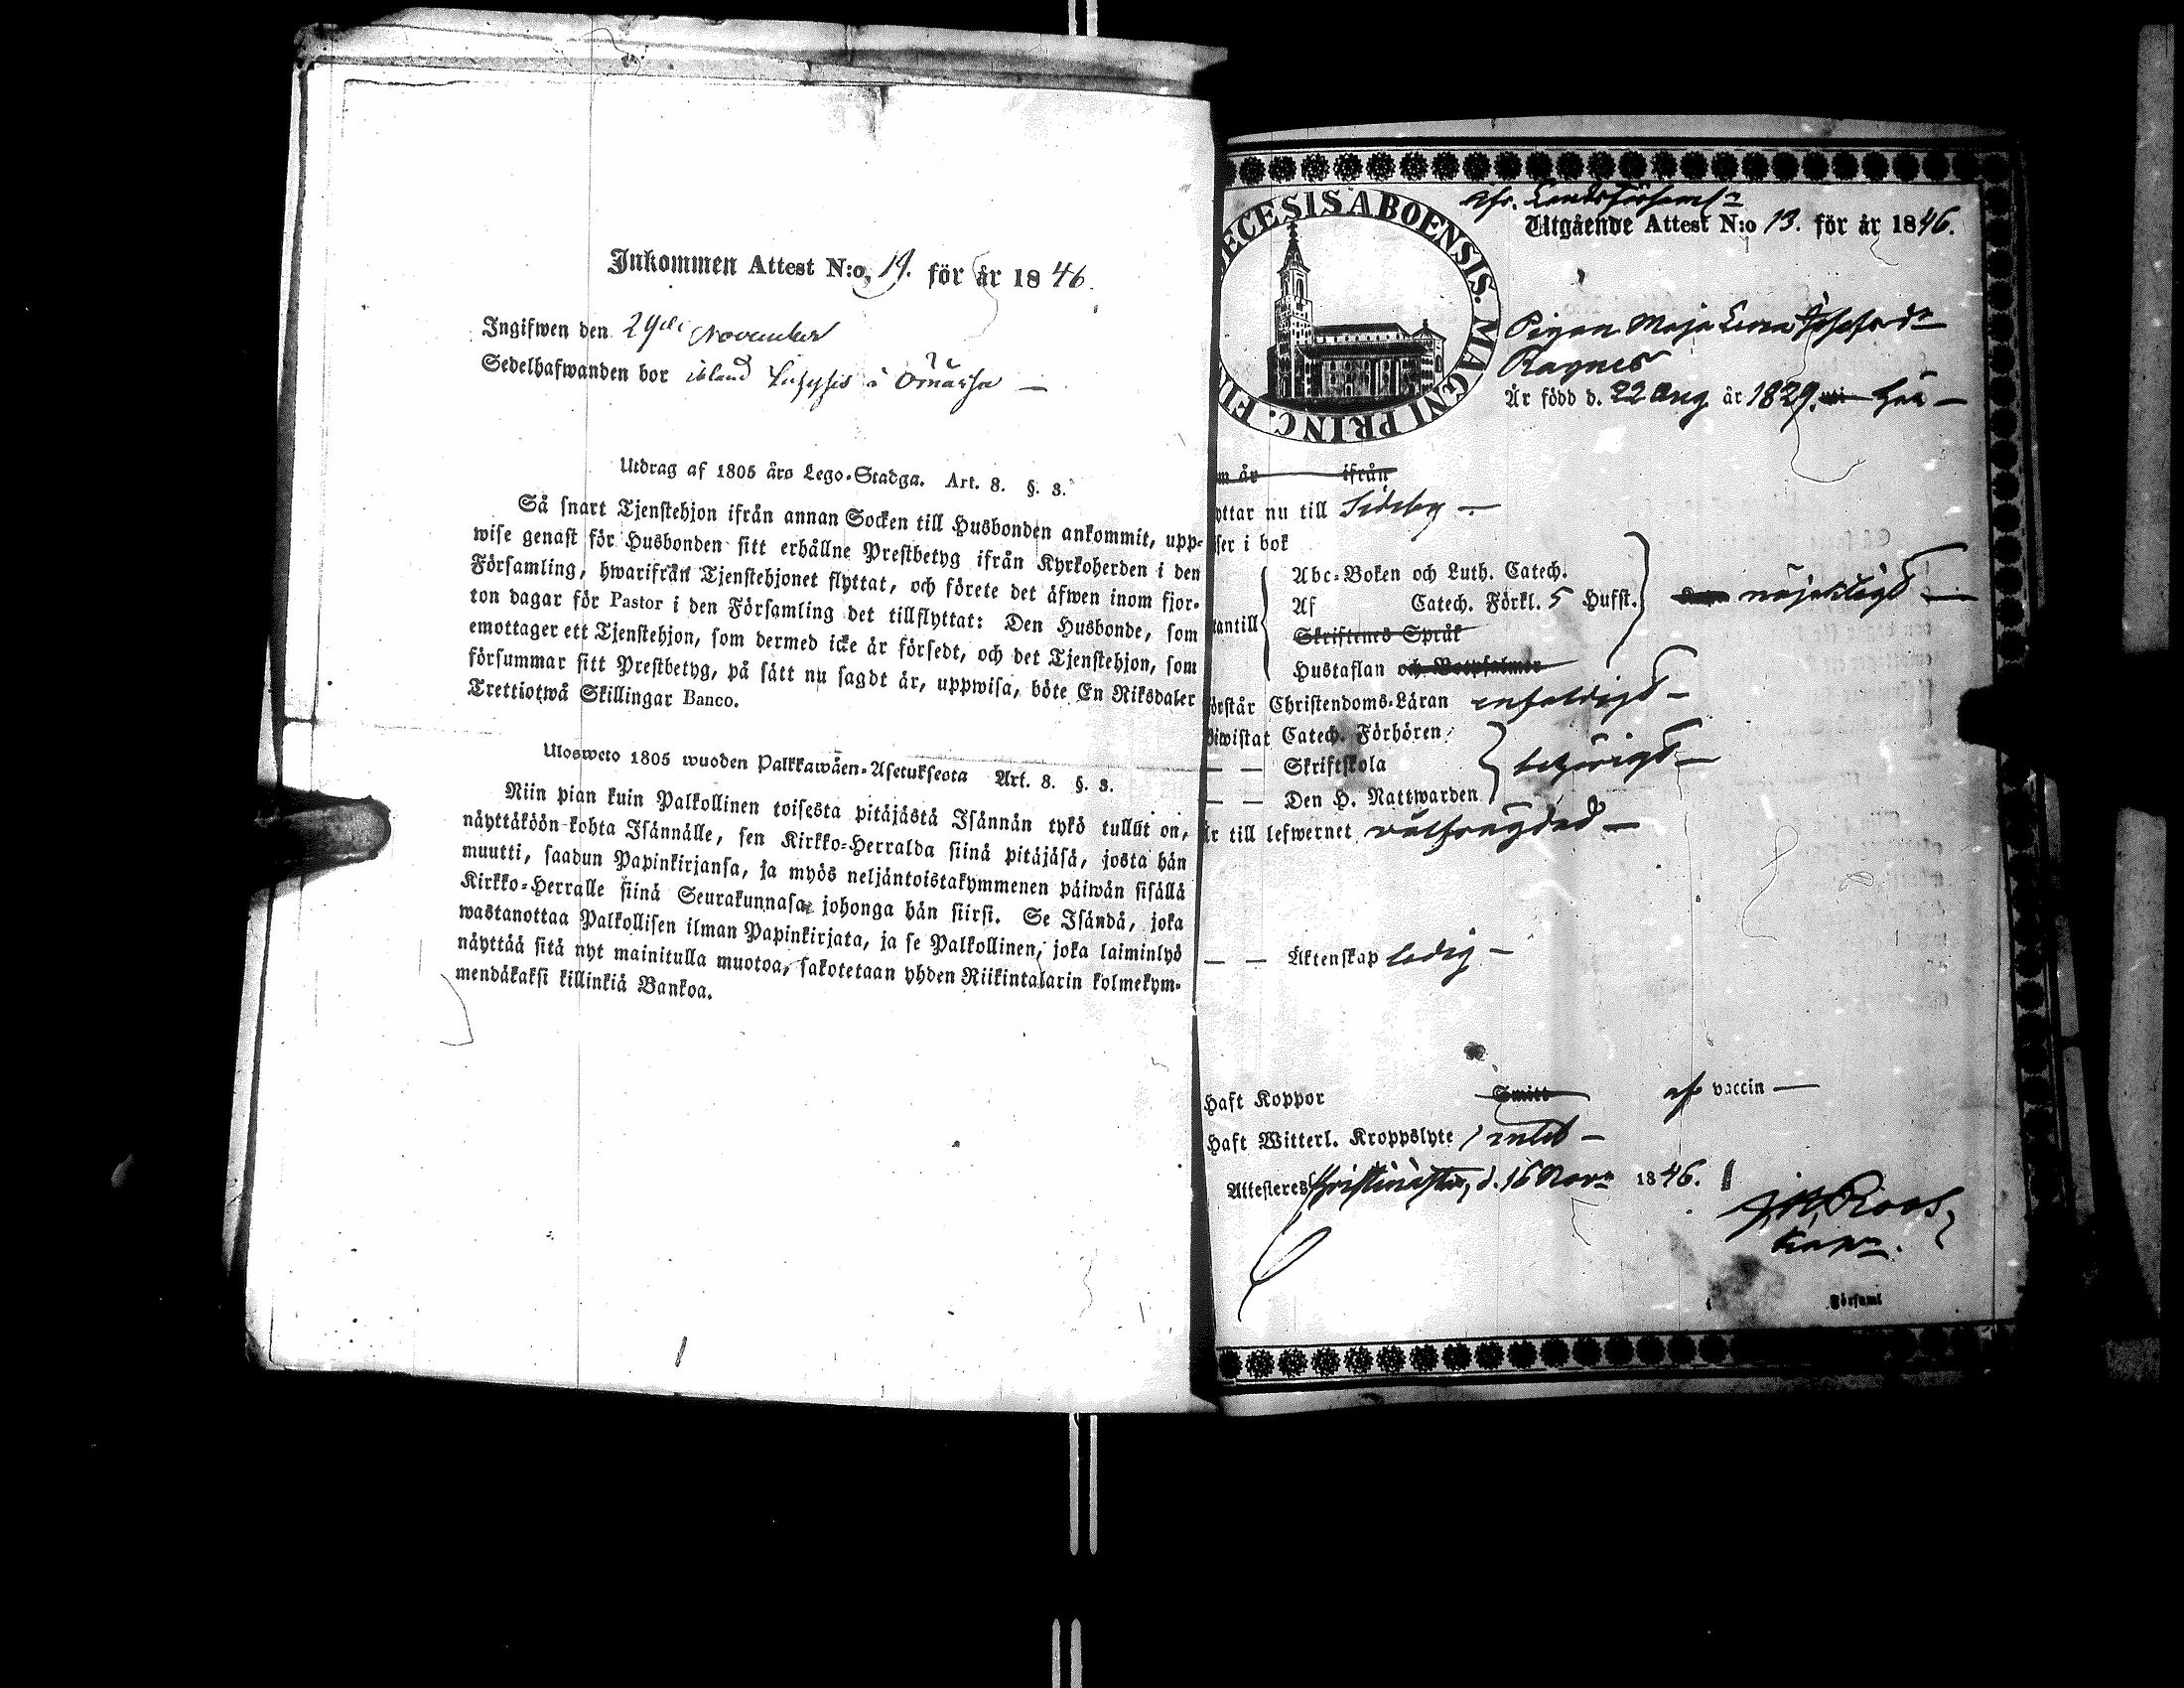 Inkommen Attest N:o, 19. för år 1846.
Ingifwen den 29de November
Sedelhafwanden bor ibland å Ömåssa —
Utdrag af 1805 års Lego-Stadga. Art. 8. §. 3.
Så snart Tjenstehjon ifrån annan Socken till Husbonden ankommit, upp-
wise genast för Husbonden sitt erhållne Prestbetyg ifrån Kyrkoherden i den
Församling, hwarifrån Tjenstehjonet flyttat, och förete det äfwen inom fjor-
ton dagar för Pastor i den Församling det tillflyttat: Den Husbonde, som
emottager ett Tjenstehjon, som dermed icke är försedt, och det Tjenstehjon, som
försummar sitt Prestbetyg, på sätt nu sagdt är, uppwisa, böte En Riksdaler
Trettiotwå Skillingar Banco.
Ulosweto 1805 wuoden Palkkawäen-Asetuksesta Art. 8. §. 3.
Niin pian kuin Palkollinen toisesta pitäjästä Isännän tykö tullut on,
näyttäköön kohta Isännälle, sen Kirkko-Herralda siinä pitäjäsä, josta hän
muutti, saadun Papinkirjansa, ja myös neljäntoistakymmenen päiwän sisällä
Kirkko-Herralle siinä Seurakunnasa, johonga hän siirsi. Se Isändä, joka
wastanottaa Palkollisen ilman Papinkirjata, ja se Palkollinen, joka laiminlyö
näyttää sitä nyt mainitulla muotoa, sakotetaan yhden Riikintalarin kolmekym-
mendäkaksi killinkiä Bankoa.
ECESIS ABOENSIS. MAGNI PRINC. FI
Utgående Attest N:o 13. för år 1846.
Pigan Maja Lena Josefsdr
Ragnes
Är född d. 22 Aug år 1829. här —
m år ifrån
yttar nu till Sideby —
ser i bok
Abc-Boken och Luth. Catech.
Af Catech. Förkl. 5 Hufst. nöjaktigt —
antill
Skriftenes Språk
Hustaflan och Botpsalmer
örstår Christendoms-Läran enfaldigt —
iwistat Catech. Förhören
— — Skriftskola behörigt —
— — Den H. Nattwarden
är till lefwernet välfrägdad —
— — Äktenskap ledig —
Haft Koppor Smitt af vaccin —
Haft Witterl. Kroppslyte intet —
Attesteres Christinestad, d. 16 Novr 1846.
Roos,
Kapn.
Församl